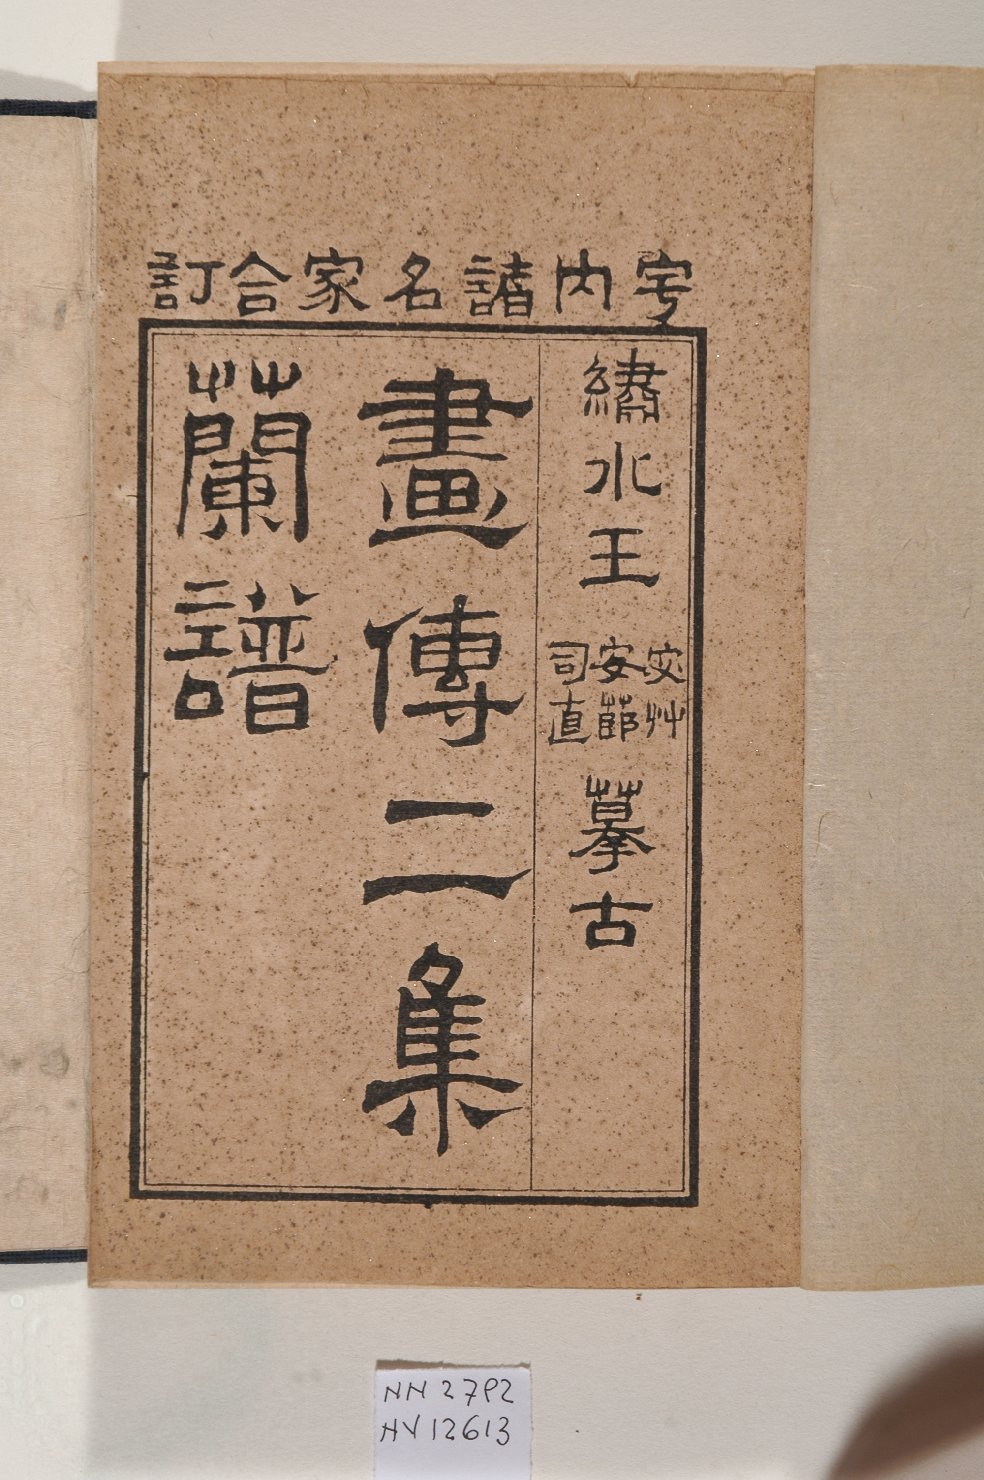 宇内諸名家合訂
繡水王
宓艸
安節
司直
摹古
畫傳二集
蘭譜
NN 2792
HV 12613